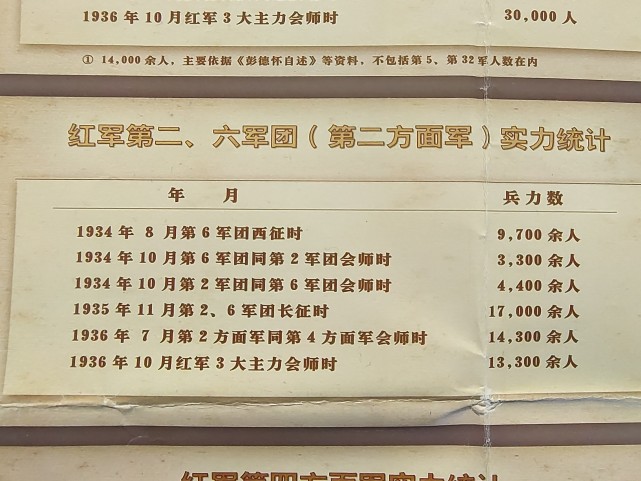 1936 年 10 月红军 3 大主力会师时 30,000 人
① 14,000 余人，主要依据《彭德怀自述》等资料，不包括第 5、第 32 军人数在内
红军第二、六军团（第二方面军）实力统计
年 月 兵力数
1934 年 8 月第 6 军团西征时 9,700 余人
1934 年 10 月第 6 军团同第 2 军团会师时 3,300 余人
1934 年 10 月第 2 军团同第 6 军团会师时 4,400 余人
1935 年 11 月第 2、6 军团长征时 17,000 余人
1936 年 7 月第 2 方面军同第 4 方面军会师时 14,300 余人
1936 年 10 月红军 3 大主力会师时 13,300 余人
红军第四方面军实力统计